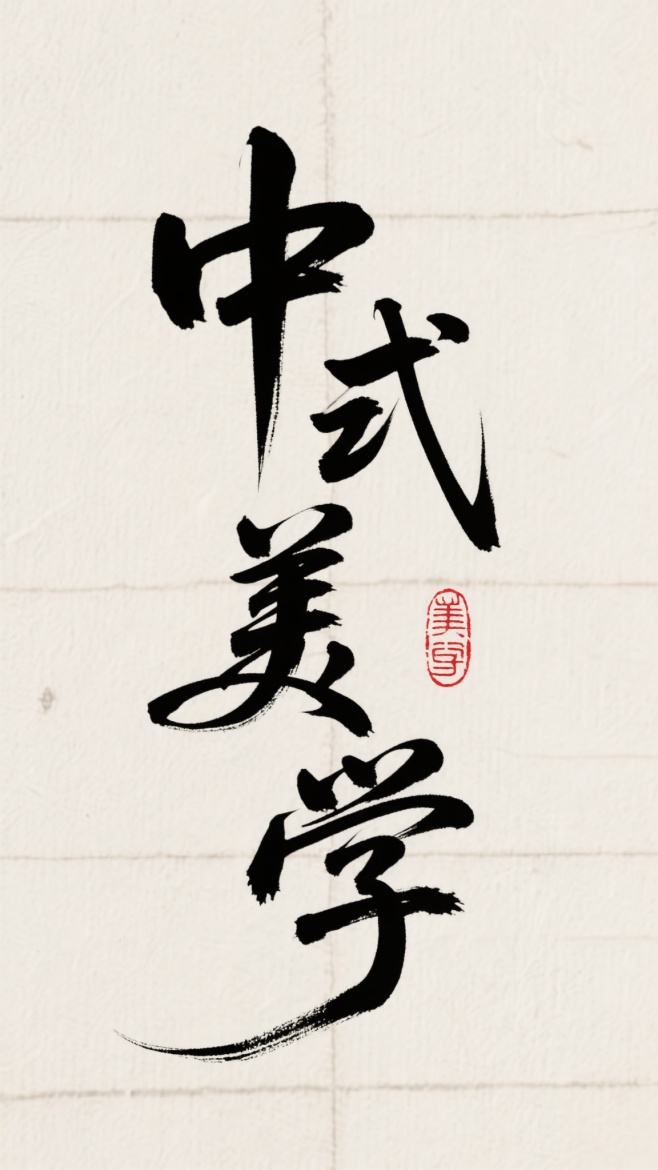 中式美学
美学